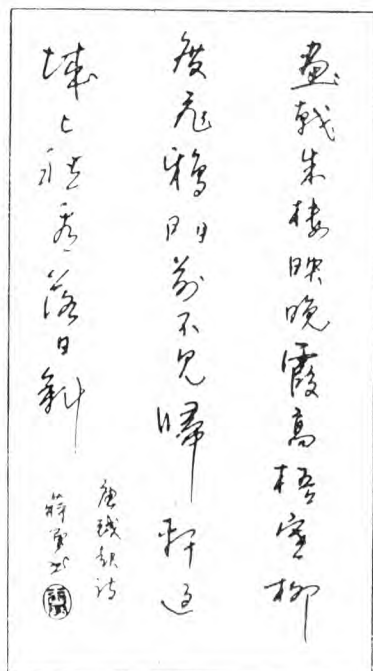 畫戟朱樓映晚霞高梧寒柳
度飛鴉門前不見歸軒至
城上愁看落日斜
唐錢起詩